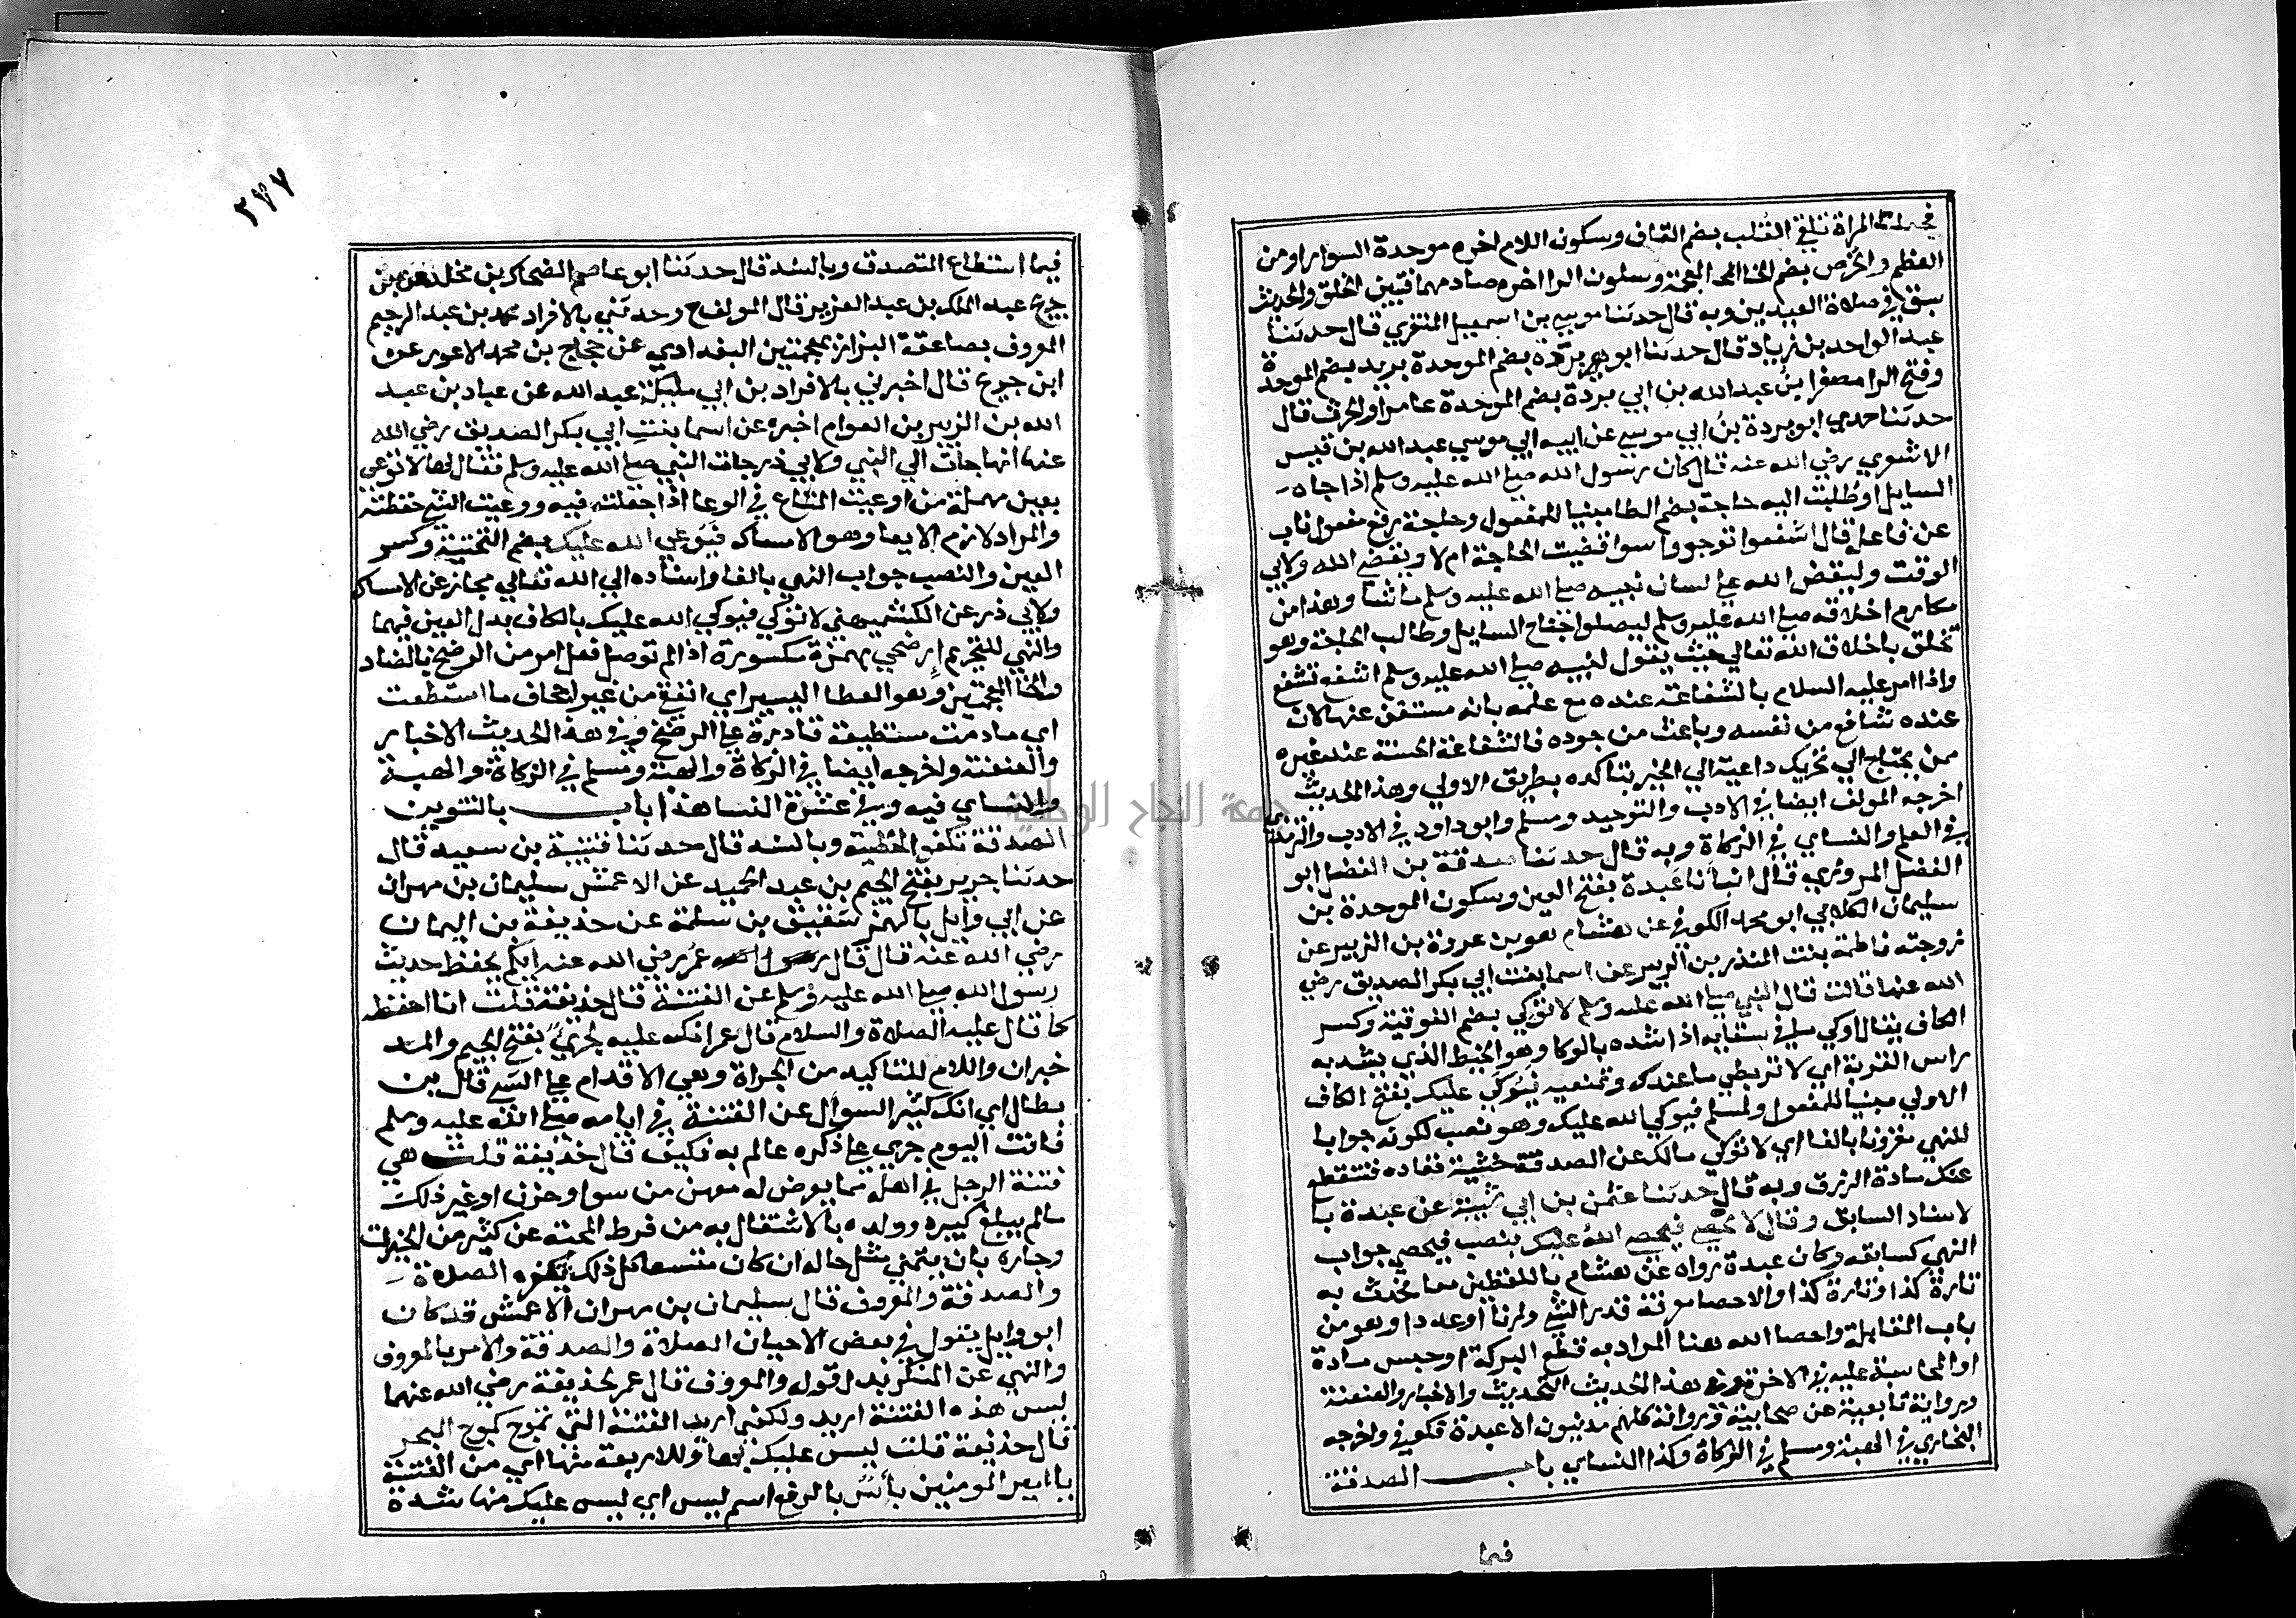 فجعلت المراة تلقي القلب بضم القاف وسكون اللام اخره موحدة السوار او من
العظم والخرص بضم الخا المعجمة وسكون الرا اخره صاد مهملة الخلق والحديث
سبق في صلاة العيدين وبه قال حدثنا موسي بن اسمعيل المنقري قال حدثنا
عبد الواحد بن زياد قال حدثنا ابو بردة بضم الموحدة بريد بضم الموحدة
وفتح الرا مصغرا بن عبد الله بن ابي بردة بضم الموحدة عامر او الحرث قال
حدثنا جدي ابو بردة بن ابي موسي عن ابيه ابي موسي عبد الله بن قيس
الاشعري رضي الله عنه قال كان رسول الله صلي الله عليه وسلم اذا جاه
السايل او طلبت اليه حاجة بضم الطا مبنيا للمفعول وحاجة رفع مفعول ناب
عن فاعله قال اشفعوا توجروا سوا قضيت الحاجة ام لا ويقضي الله ولابي
الوقت وليقض الله علي لسان نبيه صلي الله عليه وسلم ما شا وهذا من
مكارم اخلاقه صلي الله عليه وسلم ليصلوا جناح السايل وطالب الحاجة وهو
تخلق باخلاق الله تعالي حيث يقول لنبيه صلي الله عليه وسلم اشفع تشفع
واذا امر عليه السلام بالشفاعة عنده مع علمه بانه مستغن عنها لان
عنده شافع من نفسه وباعث من جوده فالشفاعة الحسنة عند غيره
ممن يحتاج الي تحريك داعية الي الخير متاكده بطريق الاولي وهذا الحديث
اخرجه المولف ايضا في الادب والتوحيد ومسلم وابو داود في الادب والترمذي
في العلم والنساي في الزكاة وبه قال حدثنا صدقة بن الفضل ابو
الفضل المروزي قال انبانا عبدة بفتح العين وسكون الموحدة بن
سليمان الكلابي ابو محمد الكوفي عن هشام هو بن عروة بن الزبير عن
زوجته فاطمة بنت المنذر بن الزبير عن اسما بنت ابي بكر الصديق رضي
الله عنها قالت قال النبي صلي الله عليه وسلم لا توكي بضم الفوقية وكسر
الكاف يقال اوكي سقايه اذا شده بالوكا وهو الخيط الذي يشد به
راس القربة اي لا تربطي ما عندك وتمنعيه فيوكي عليك بفتح الكاف
الاولي مبنيا للمفعول ولمسلم فيوكي الله عليك وهو نصب لكونه جوابا
للنهي مقرونا بالفا اي لا توكي مالك عن الصدقة خشية نفاده فتنقطع
عنك مادة الرزق وبه قال حدثنا عثمن بن ابي شيبة عن عبدة با
لاسناد السابق وقال لا تحصي فيحصي الله عليك بنصب فيحصي جواب
النهي كسابقه وكان عبدة رواه عن هشام باللفظين معا فحدث به
تارة كذا وتارة كذا والاحصا معرفة قدر الشي وزنا او عددا وهو من
باب المقابلة واحصا الله هنا المراد به قطع البركة او حبس مادة
او المحاسبة عليه في الاخرة وفي هذا الحديث التحديث والاخبار والعنعنة
ورواية تابعية عن صحابية ورواته كلهم مدنيون الا عبدة فكوفي واخرجه
البخاري في الهبة ومسلم في الزكاة وكذا النساي باب الصدقة
فيما
٢٧٧
فيما استطاع المتصدق وبالسند قال حدثنا ابو عاصم الضحاك بن مخلد عن بن
جريج عبد الملك بن عبد العزيز قال المولف ح وحدثني بالافراد محمد بن عبد الرحيم
المعروف بصاعقة البزاز بمعجمتين البغدادي عن حجاج بن محمد الاعور عن
ابن جريج قال اخبرني بالافراد بن ابي مليكة عبد الله عن عباد بن عبد
الله بن الزبير بن العوام اخبره عن اسما بنت ابي بكر الصديق رضي الله
عنها انها جات الي النبي ولابي ذر جات النبي صلي الله عليه وسلم فقال لها لا توعي
بعين مهملة من اوعيت المتاع في الوعا اذا جعلته فيه ووعيت الشي حفظته
والمراد لازم الايعا وهو الامساك فيوعي الله عليك بضم التحتية وكسر
العين والنصب جواب النهي بالفا واسناده الي الله تعالي مجاز عن الامساك
ولابي ذر عن الكشميهني لا توكي فيوكي الله عليك بالكاف بدل العين فيهما
والنهي للتحريم ارضخي بهمزة مكسورة اذا لم توصل فعل امر من الرضخ بالضاد
والخا المعجمتين وهو العطا اليسير اي انفقي من غير اجحاف ما استطعت
اي ما دمت مستطيعة قادرة علي الرضخ وفي هذا الحديث الاخبار
والعنعنة واخرجه ايضا في الزكاة والهبة ومسلم في الزكاة والهبة
والنساي فيه وفي عشرة النسا هذا باب بالتنوين
الصدقة تكفر الخطيئة وبالسند قال حدثنا قتيبة بن سعيد قال
حدثنا جرير بفتح الجيم بن عبد الحميد عن الاعمش سليمان بن مهران
عن ابي وايل بالهمز شقيق بن سلمة عن حذيفة بن اليمان
رضي الله عنه قال قال عمر رضي الله عنه ايكم يحفظ حديث
رسول الله صلي الله عليه وسلم عن الفتنة قال حذيفة قلت انا احفظه
كما قال عليه الصلاة والسلام قال عمر انك عليه لجريء بفتح الجيم والمد
خبر ان واللام للتاكيد من الجراة وهي الاقدام علي الشي قال بن
بطال اي انك كثير السوال عن الفتنة في ايامه صلي الله عليه وسلم
فانت اليوم جري علي ذكره عالم به فكيف قال حذيفة قلت هي
فتنة الرجل في اهله مما يعرض له معهن من سوا وحزن او غير ذلك
مالم يبلغ كبيرة وولده بالاشتغال به من فرط المحبة عن كثير من الخيرات
وجاره بان يتمني مثل حاله ان كان متسعا كل ذلك تكفره الصلاة
والصدقة والمعروف قال سليمان بن مهران الاعمش قد كان
ابو وايل يقول في بعض الاحيان الصلاة والصدقة والامر بالمعروف
والنهي عن المنكر بدل قوله والمعروف قال عمر لحذيفة رضي الله عنهما
ليس هذه الفتنة اريد ولكني اريد الفتنة التي تموج كموج البحر
قال حذيفة قلت ليس عليك بها وللاربعة منها اي من الفتنة
يا امير المومنين باس بالرفع اسم ليس اي ليس عليك منها شدة
جامعة النجاح الوطنية